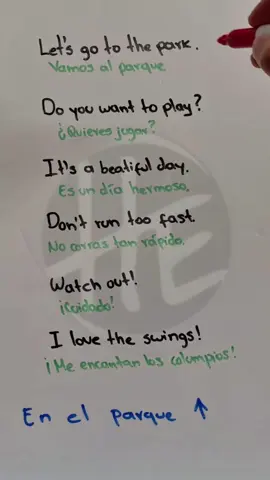 Let's go to the park.
Vamos al parque
Do you want to play?
¿Quieres jugar?
It's a beatiful day.
Es un día hermoso.
Don't run too fast.
No corras tan rápido.
Watch out!
¡Cuidado!
I love the swings!
¡Me encantan los columpios!
En el parque ↑